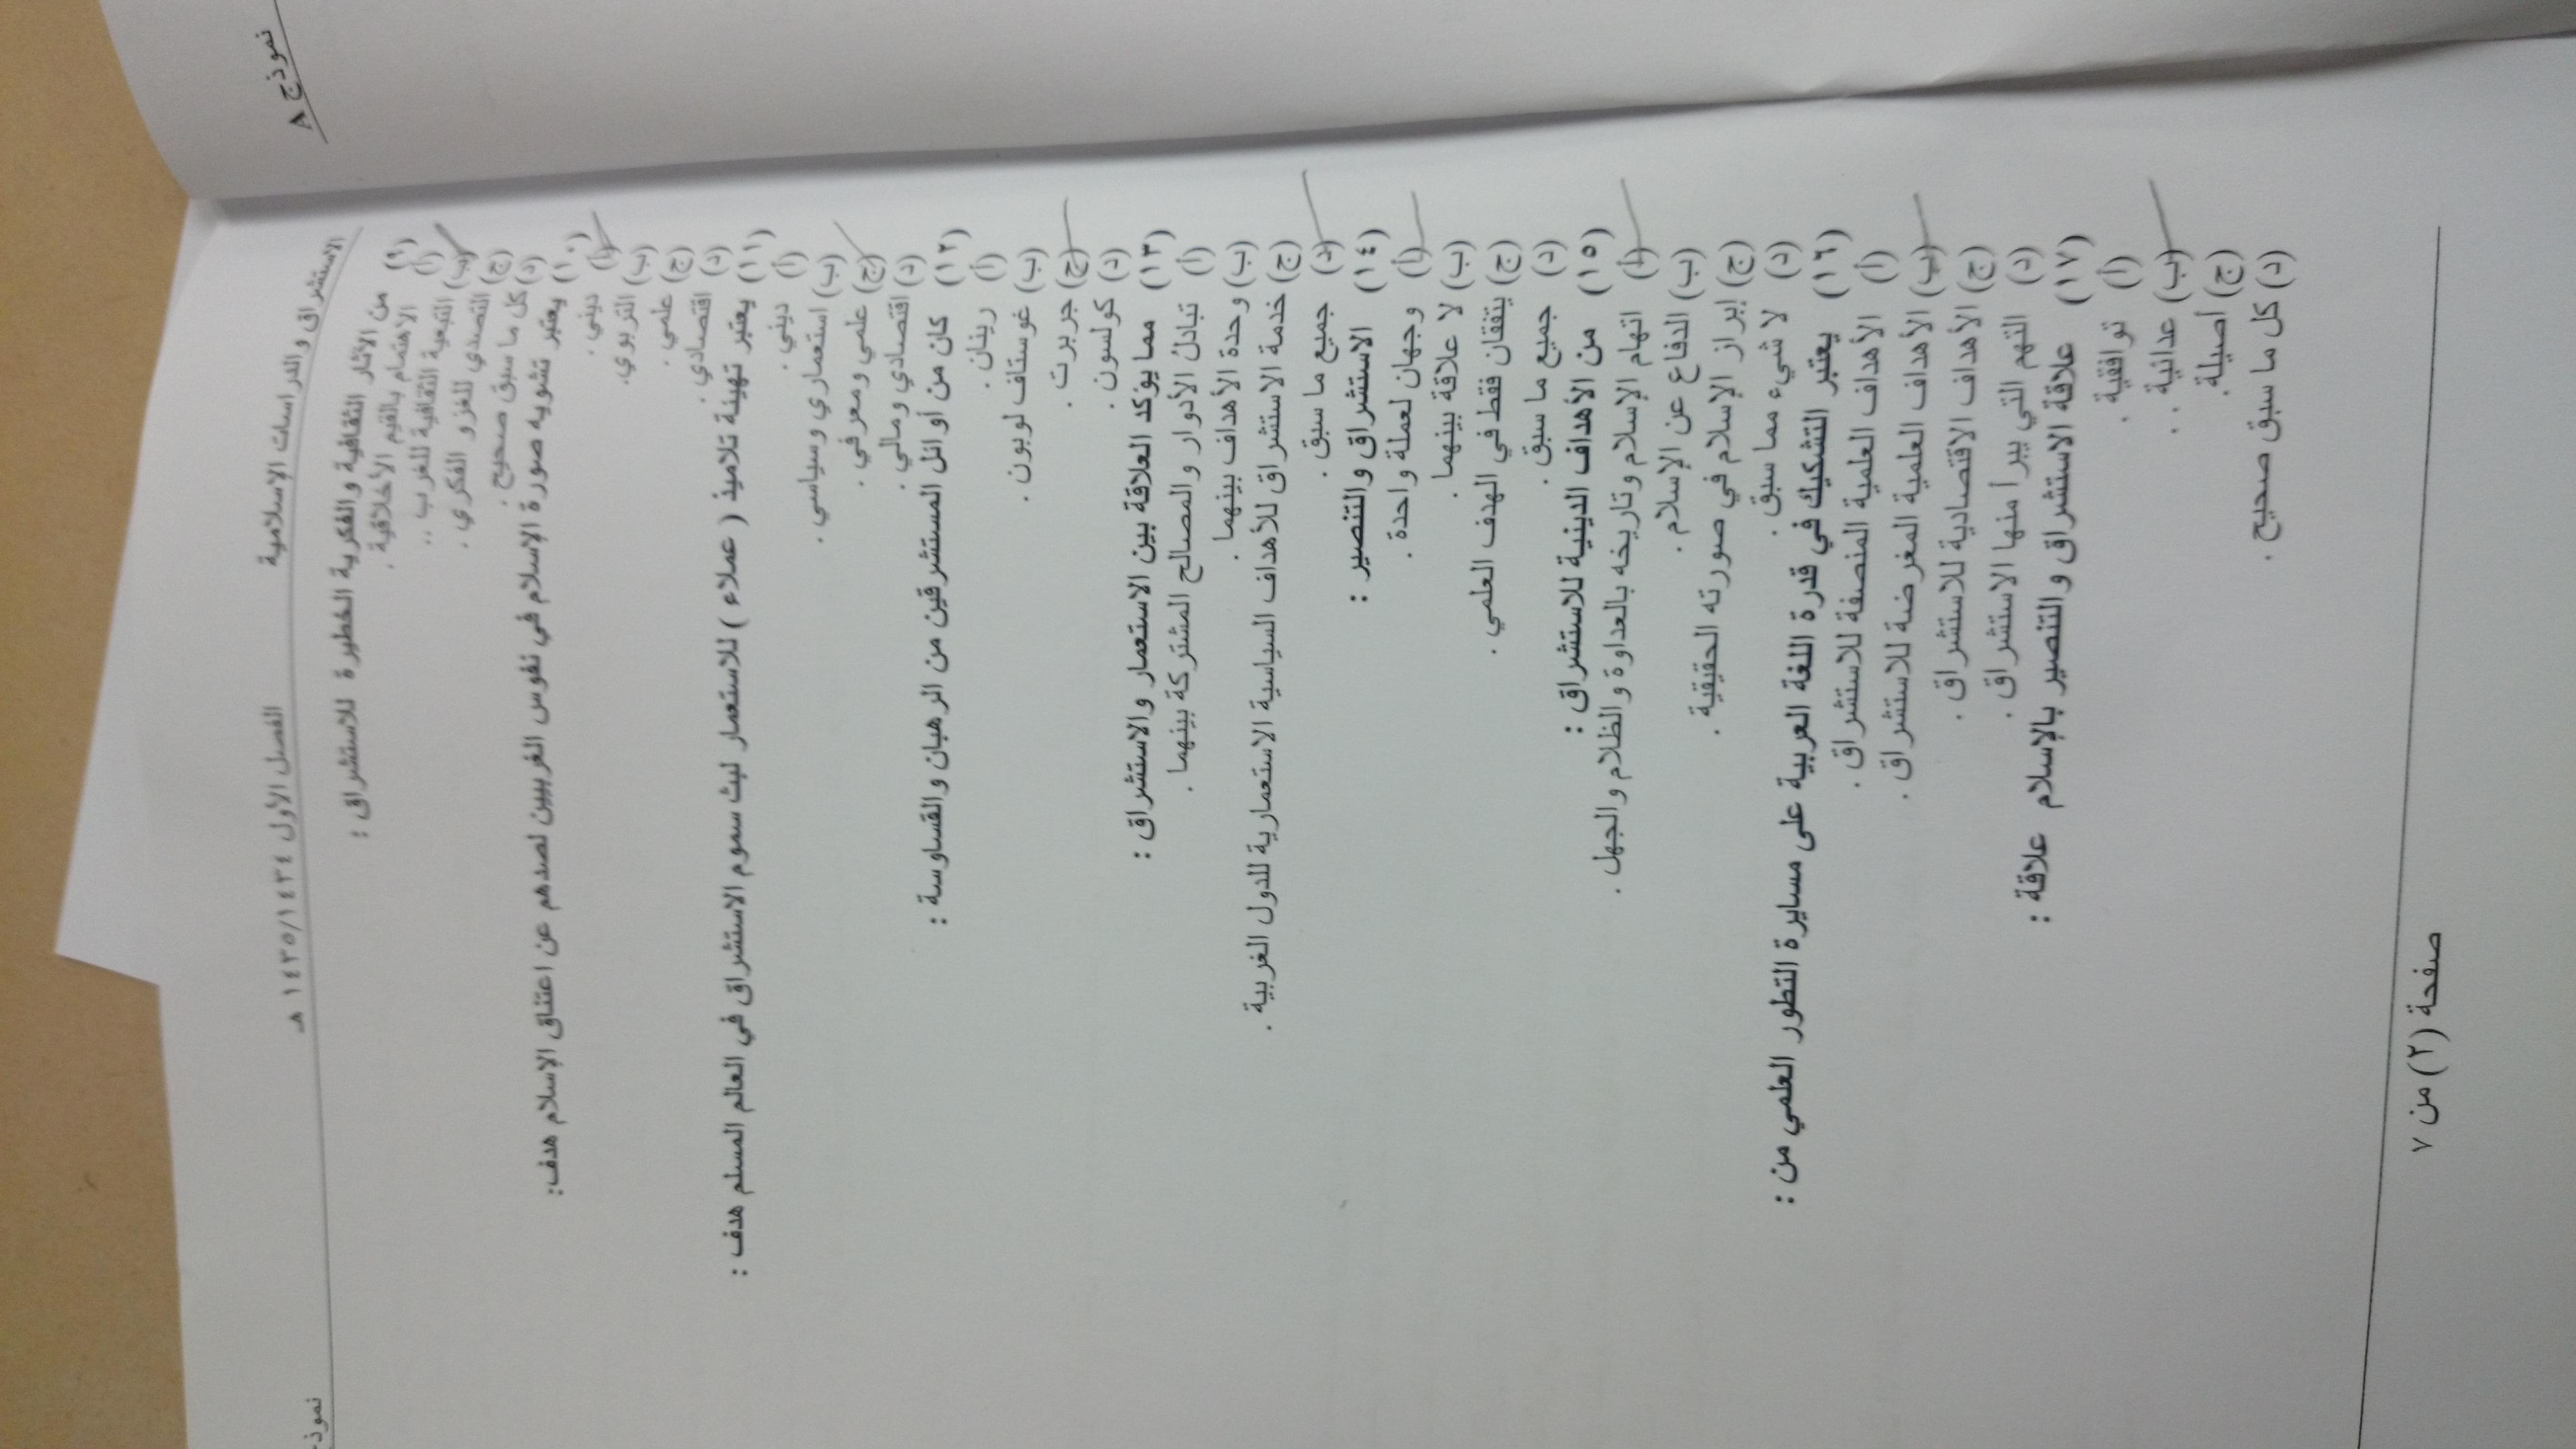 نموذج A
الاستشراق والدراسات الإسلامية
الفصل الأول ١٤٣٥/١٤٣٤ هـ
(٩) من الآثار الثقافية والفكرية الخطيرة للاستشراق :
(أ) الاهتمام بالقيم الأخلاقية .
(ب) التبعية الثقافية للغرب ..
(ج) التصدي للغزو الفكري .
(د) كل ما سبق صحيح .
(١٠) يعتبر تشويه صورة الإسلام في نفوس الغربيين لصدهم عن اعتناق الإسلام هدف:
(أ) ديني .
(ب) التربوي.
(ج) علمي .
(د) اقتصادي .
(١١) يعتبر تهيئة تلاميذ ( عملاء ) للاستعمار لبث سموم الاستشراق في العالم المسلم هدف :
(أ) ديني .
(ب) استعماري وسياسي .
(ج) علمي ومعرفي .
(د) اقتصادي ومالي .
(١٢) كان من أوائل المستشرقين من الرهبان والقساوسة :
(أ) رينان .
(ب) غوستاف لوبون .
(ج) جربرت .
(د) كولسون .
(١٣) مما يؤكد العلاقة بين الاستعمار والاستشراق :
(أ) تبادل الأدوار والمصالح المشتركة بينهما .
(ب) وحدة الأهداف بينهما .
(ج) خدمة الاستشراق للأهداف السياسية الاستعمارية للدول الغربية .
(د) جميع ما سبق .
(١٤) الاستشراق والتنصير :
(أ) وجهان لعملة واحدة .
(ب) لا علاقة بينهما .
(ج) يتفقان فقط في الهدف العلمي .
(د) جميع ما سبق .
(١٥) من الأهداف الدينية للاستشراق :
(أ) اتهام الإسلام وتاريخه بالعداوة والظلام والجهل .
(ب) الدفاع عن الإسلام .
(ج) إبراز الإسلام في صورته الحقيقية .
(د) لا شيء مما سبق .
(١٦) يعتبر التشكيك في قدرة اللغة العربية على مسايرة التطور العلمي من :
(أ) الأهداف العلمية المنصفة للاستشراق .
(ب) الأهداف العلمية المغرضة للاستشراق .
(ج) الأهداف الاقتصادية للاستشراق .
(د) التهم التي يبرأ منها الاستشراق .
(١٧) علاقة الاستشراق والتنصير بالإسلام علاقة :
(أ) توافقية .
(ب) عدائية ..
(ج) أصيلة.
(د) كل ما سبق صحيح .
صفحة (٢) من ٧